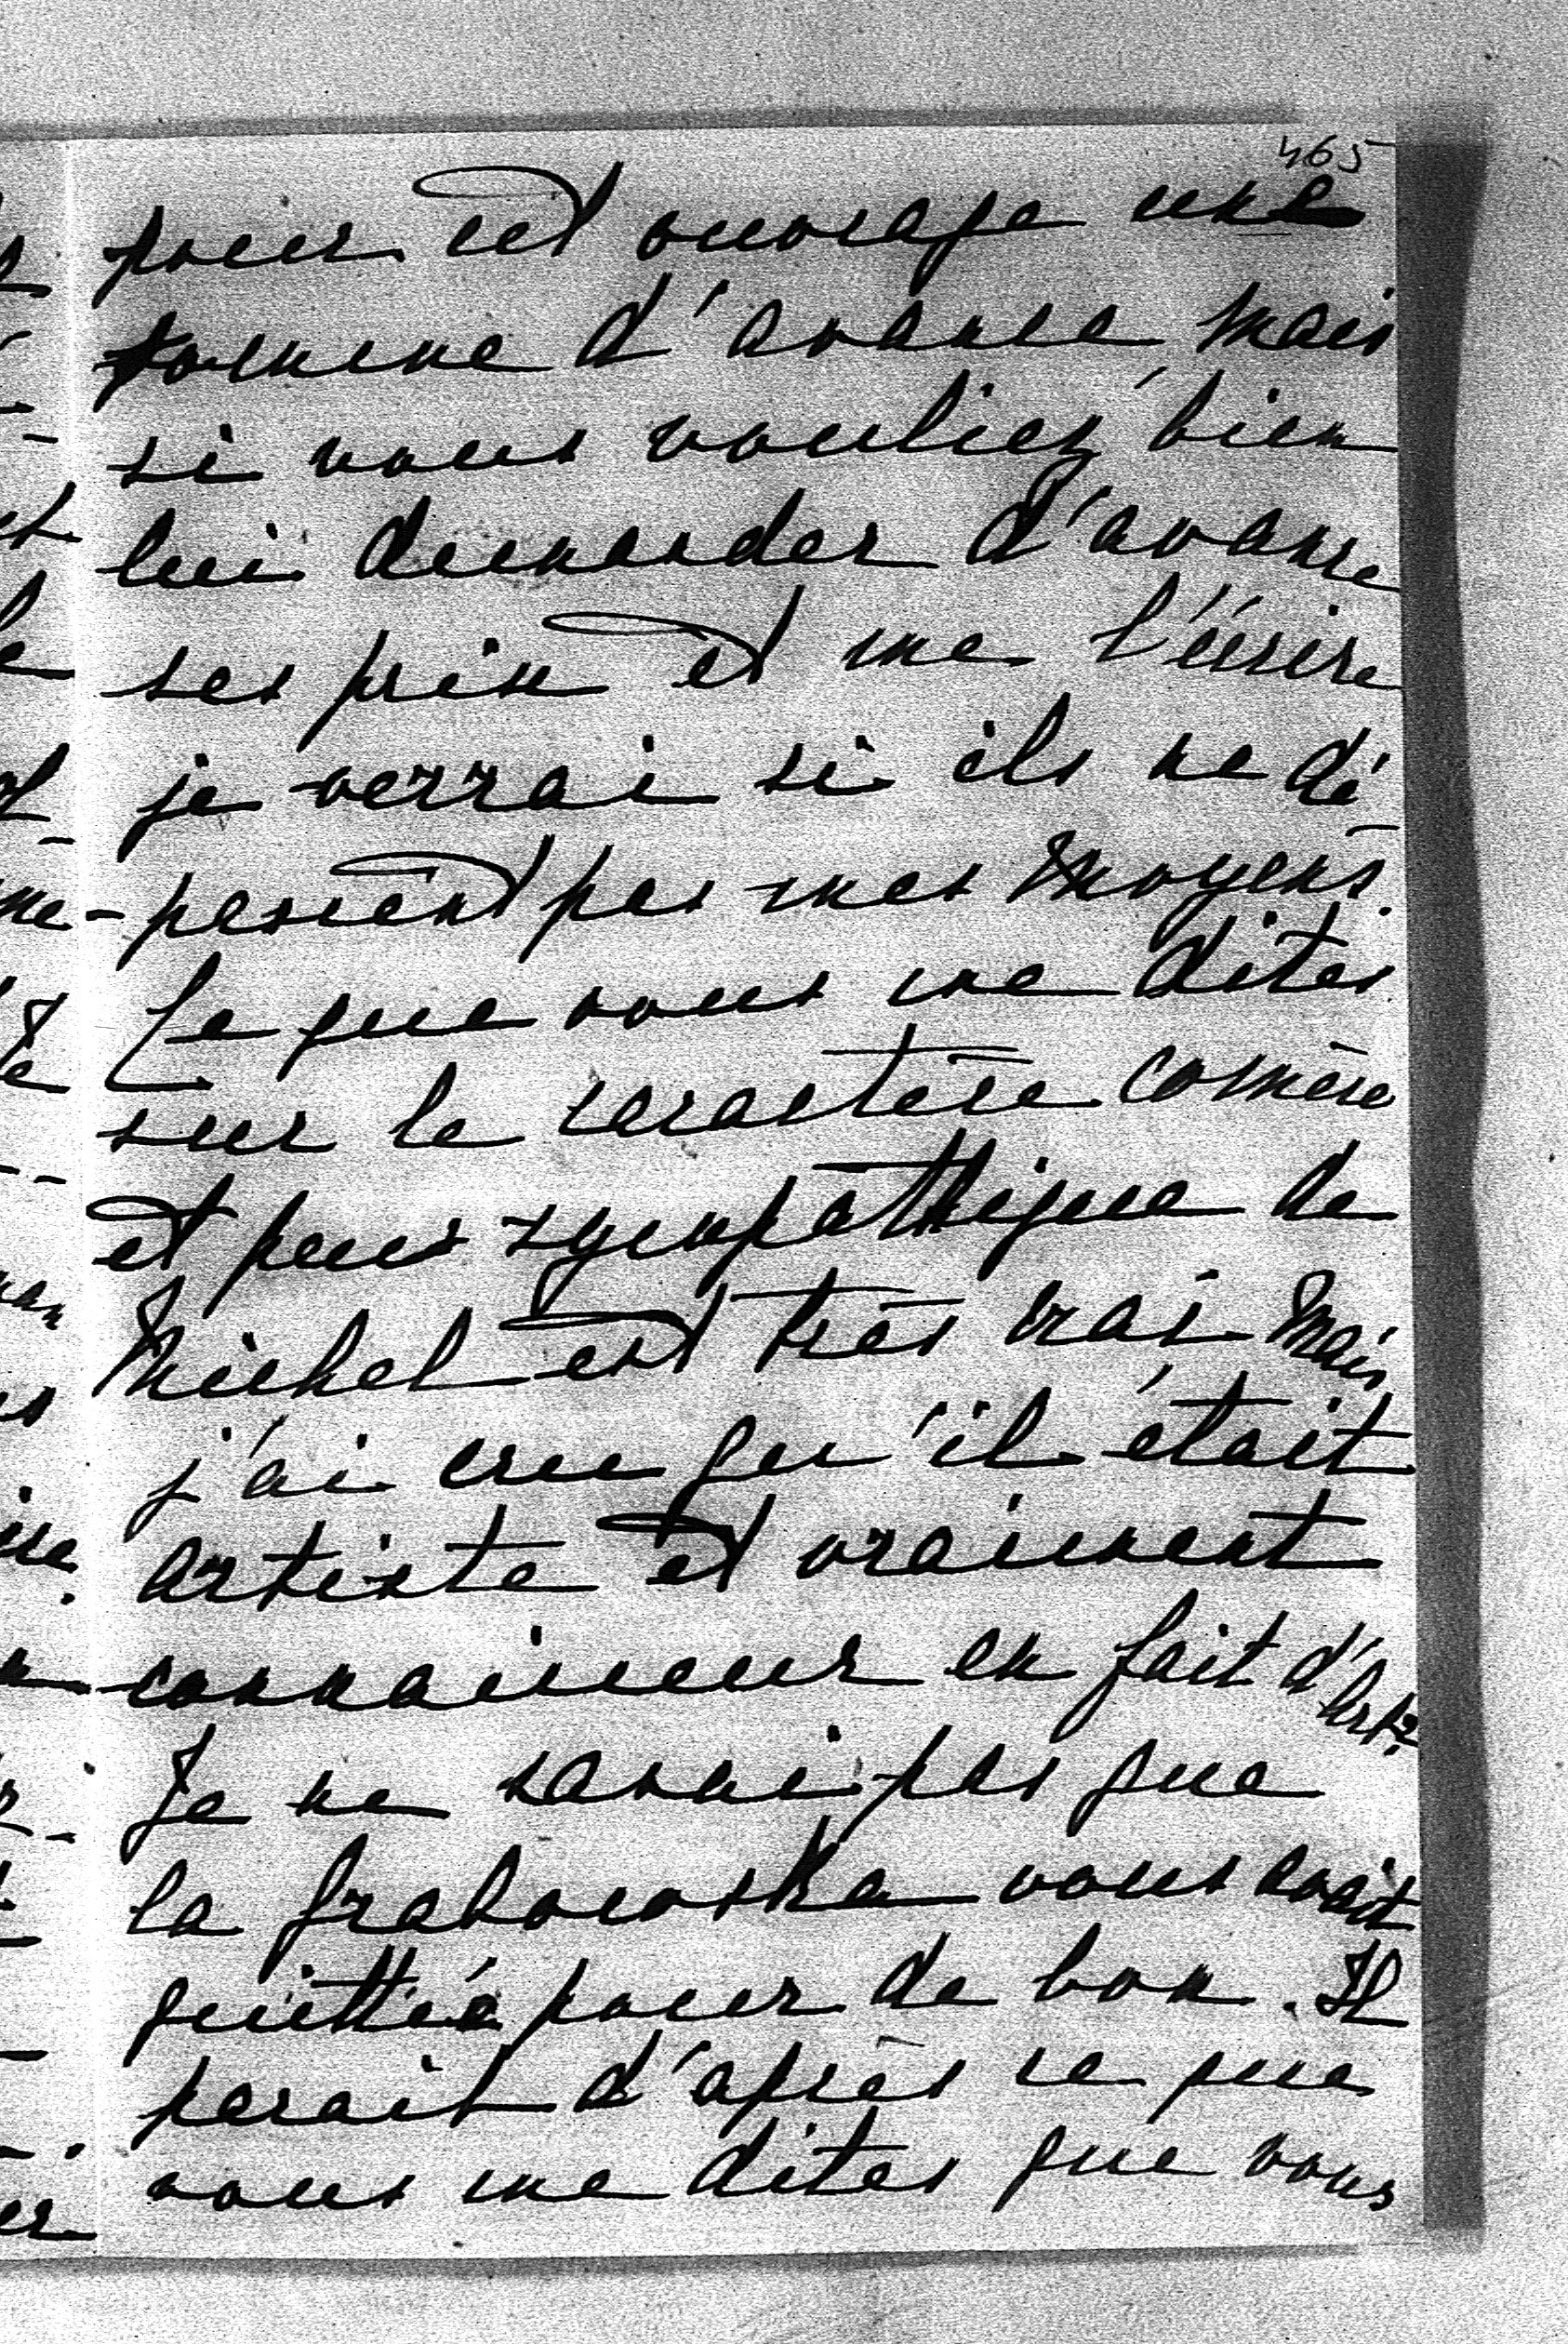 465
pour cet ouvrage une
somme d'avance mais
si vous vouliez bien
lui demander d'avance
ses prix et me l'écrire
je verrai si ils ne dé
-passent pas mes moyens.
Ce que vous me dites
sur le caractère comère
et peu sympathique de
Michel est très vrai mais
j'ai cru qu'il était
artiste et vraiment
connaisseur en fait d'Art?
Je ne savai pas que
la Grabowska vous avait
quittée pour de bon. Il
parait d'après ce que
vous me dites que vous